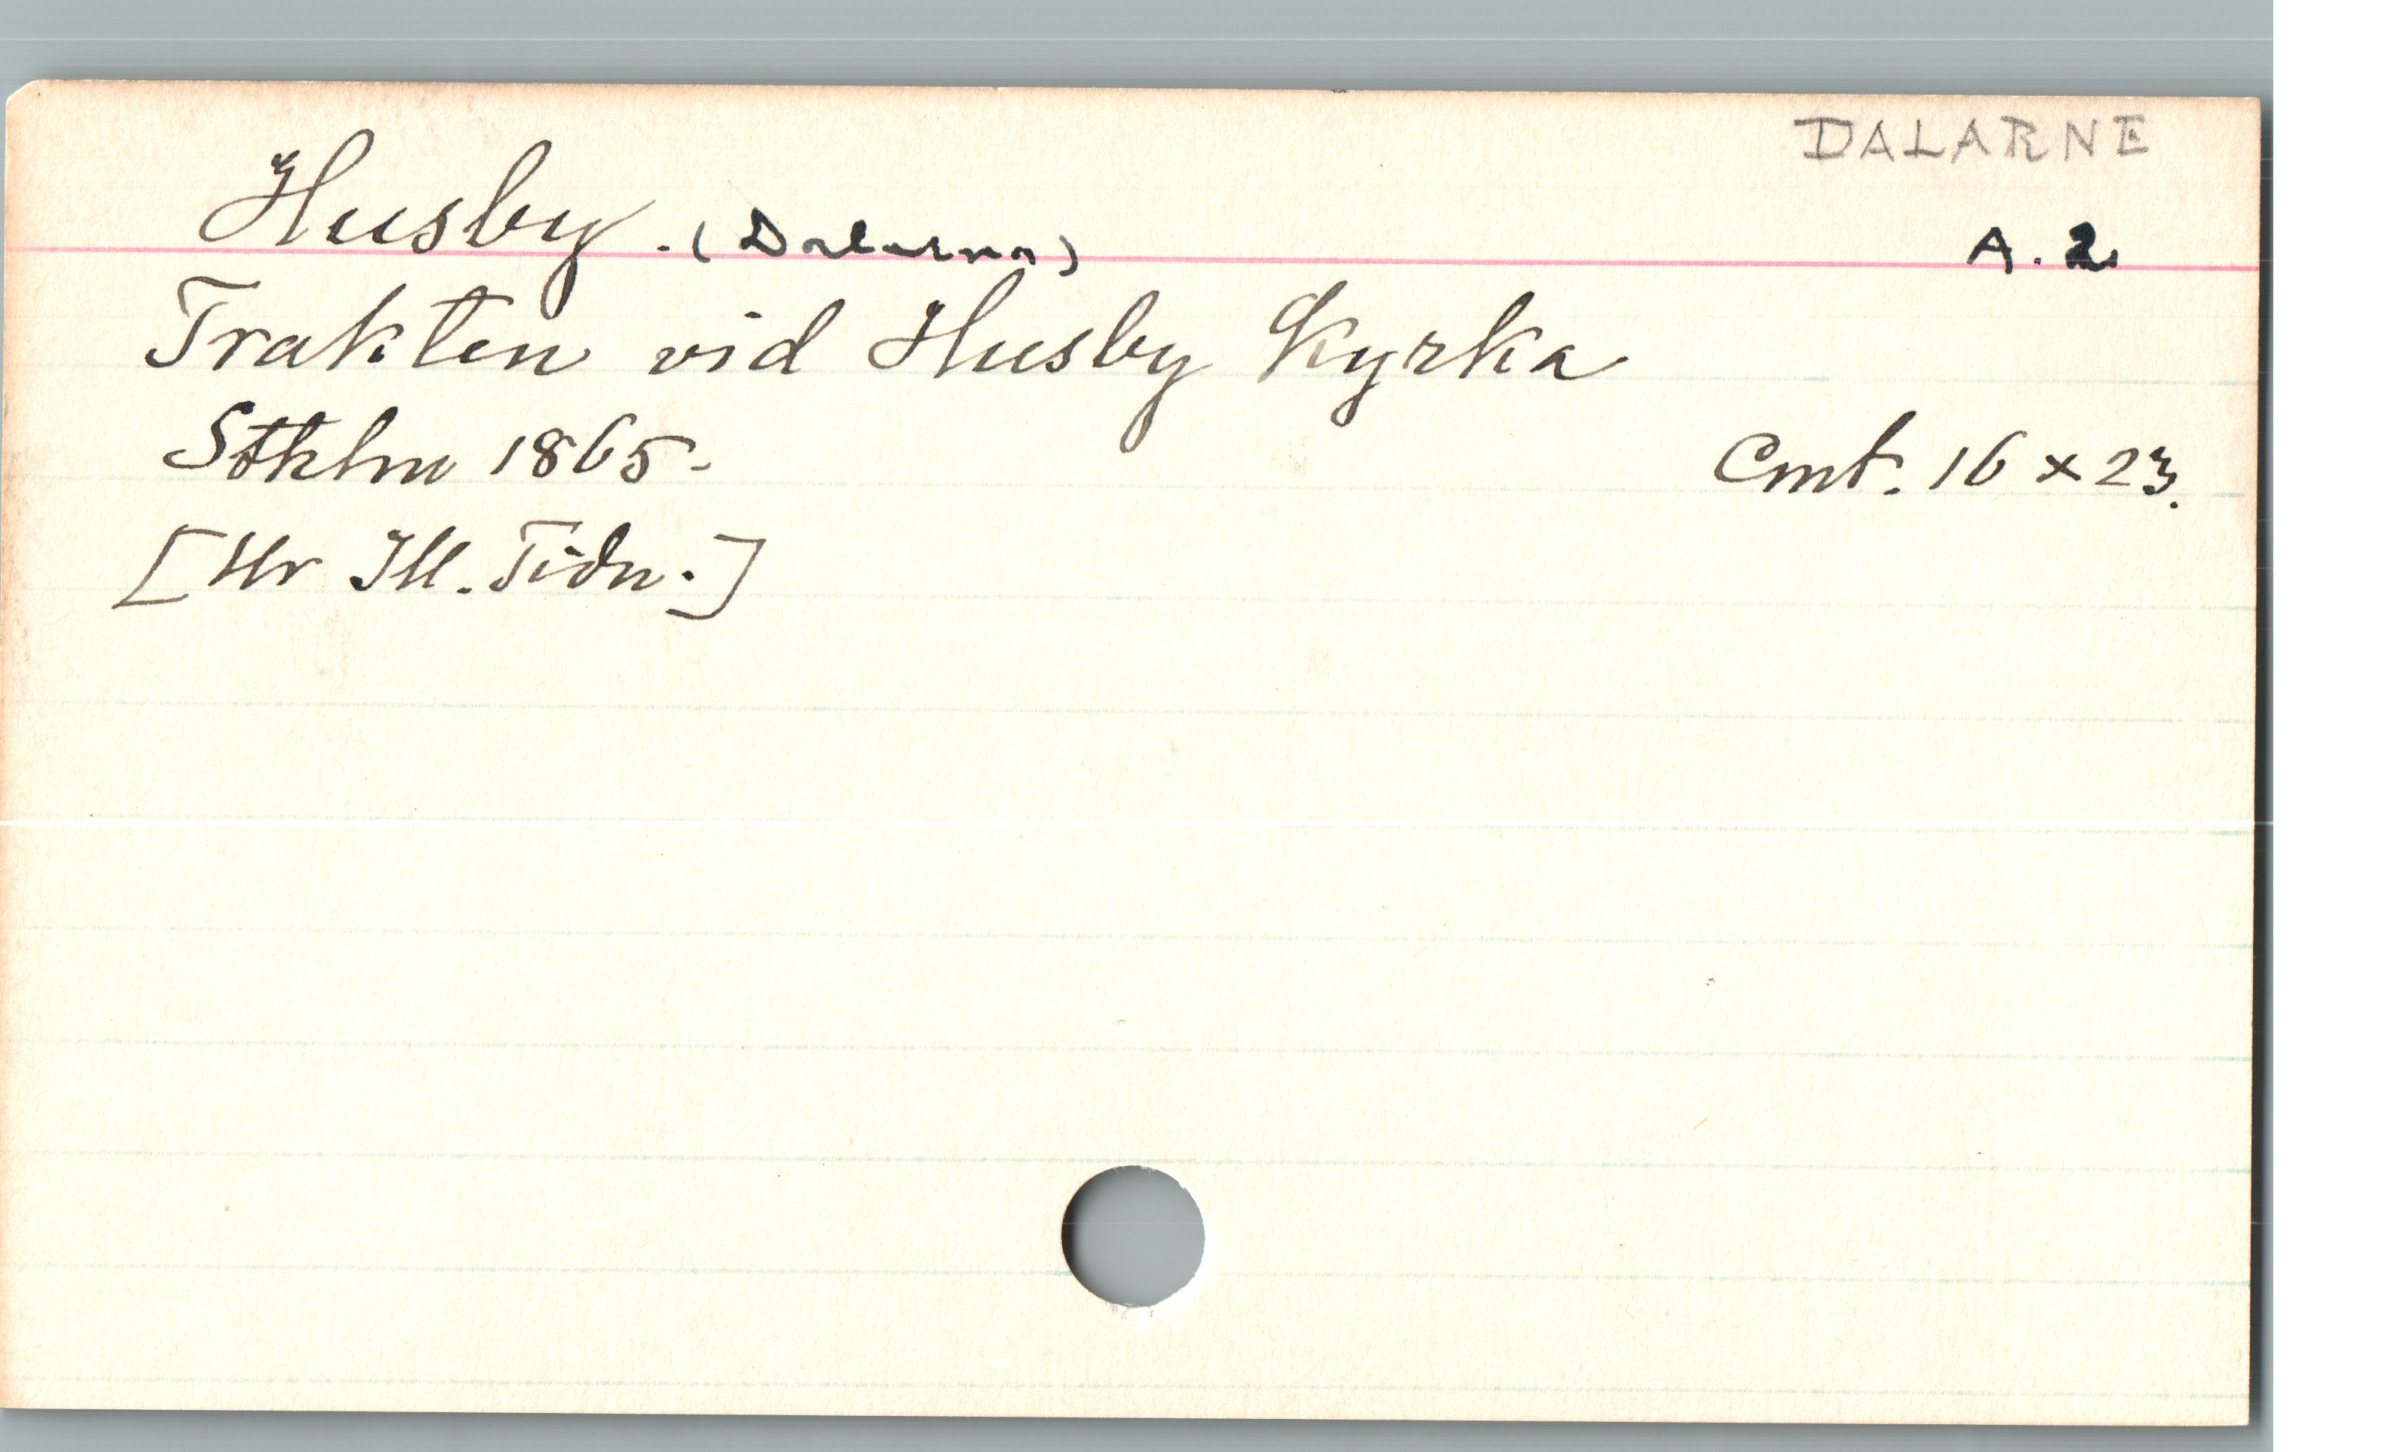 DALARNE
Husby. (Dalarna) A. 2
Trakten vid Husby Kyrka
Sthlm 1865. Cmt. 16 x 23.
[Ur Ill. Tidn.]